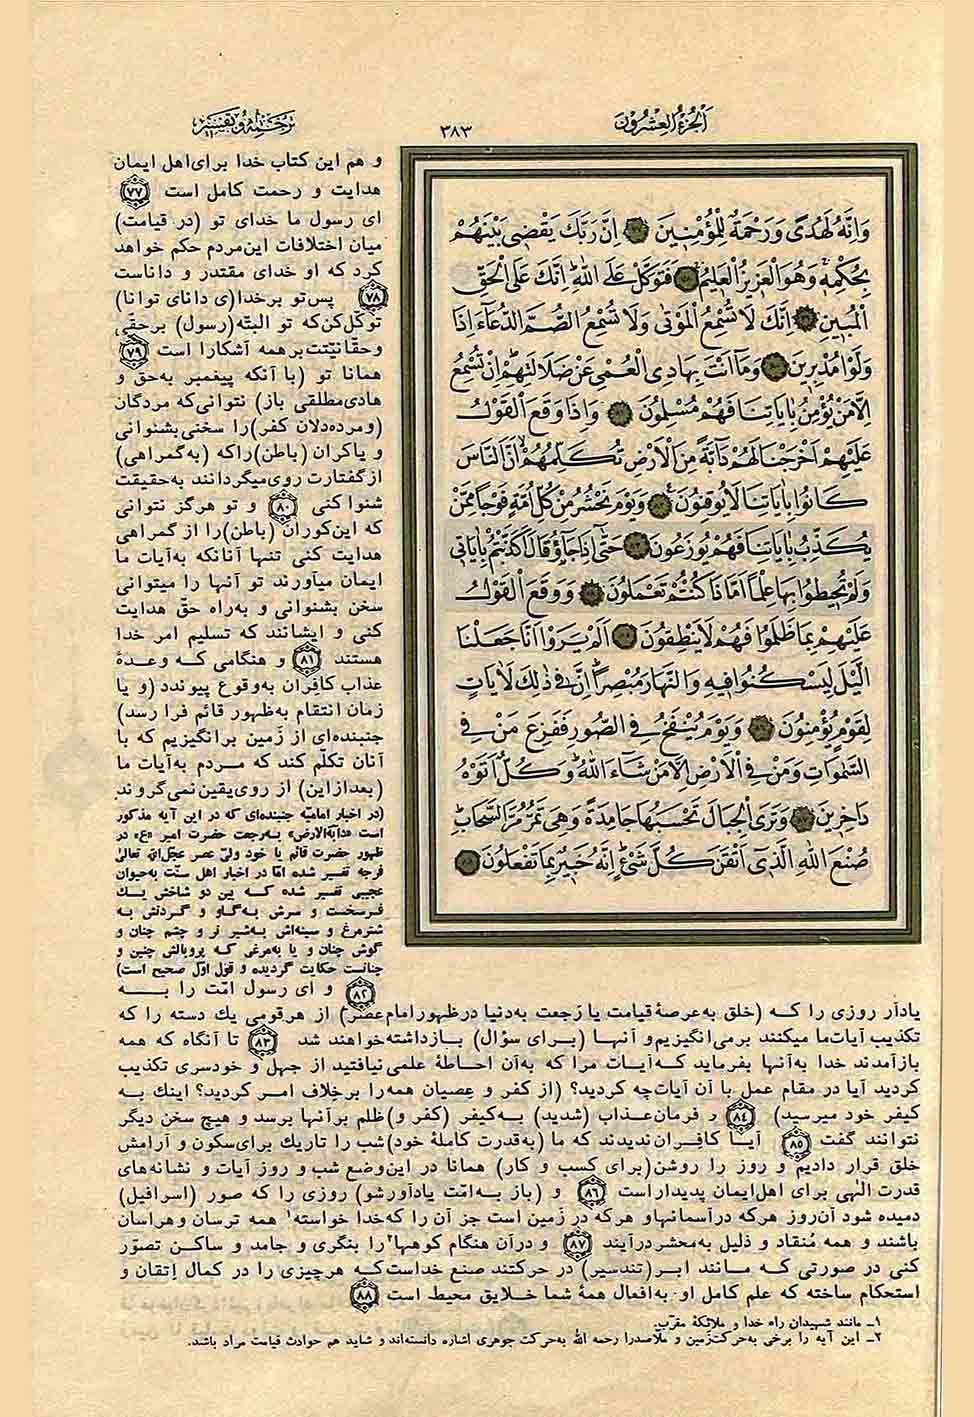 اَلجُزءُ العِشرُونَ
٣٨٣
ترجمه و تفسير
وَاِنَّهُ لَهُدًى وَرَحْمَةٌ لِلْمُؤْمِنِينَ ٧٧ اِنَّ رَبَّكَ يَقْضِى بَيْنَهُمْ
بِحُكْمِهِ وَهُوَ الْعَزِيزُ الْعَلِيمُ ٧٨ فَتَوَكَّلْ عَلَى اللهِ اِنَّكَ عَلَى الْحَقِّ
الْمُبِينِ ٧٩ اِنَّكَ لَا تُسْمِعُ الْمَوْتٰى وَلَا تُسْمِعُ الصُّمَّ الدُّعَاءَ اِذَا
وَلَّوْا مُدْبِرِينَ ٨٠ وَمَا اَنْتَ بِهَادِى الْعُمْىِ عَنْ ضَلَالَتِهِمْ اِنْ تُسْمِعُ
اِلَّا مَنْ يُؤْمِنُ بِاٰيَاتِنَا فَهُمْ مُسْلِمُونَ ٨١ وَاِذَا وَقَعَ الْقَوْلُ
عَلَيْهِمْ اَخْرَجْنَا لَهُمْ دَآبَّةً مِنَ الْاَرْضِ تُكَلِّمُهُمْ اَنَّ النَّاسَ
كَانُوا بِاٰيَاتِنَا لَا يُوقِنُونَ ٨٢ وَيَوْمَ نَحْشُرُ مِنْ كُلِّ اُمَّةٍ فَوْجًا مِمَّنْ
يُكَذِّبُ بِاٰيَاتِنَا فَهُمْ يُوزَعُونَ ٨٣ حَتّٰى اِذَا جَاؤُ قَالَ اَكَذَّبْتُمْ بِاٰيَاتِى
وَلَمْ تُحِيطُوا بِهَا عِلْمًا اَمَّا ذَا كُنْتُمْ تَعْمَلُونَ ٨٤ وَوَقَعَ الْقَوْلُ
عَلَيْهِمْ بِمَا ظَلَمُوا فَهُمْ لَا يَنْطِقُونَ ٨٥ اَلَمْ يَرَوْا اَنَّا جَعَلْنَا
الَّيْلَ لِيَسْكُنُوا فِيهِ وَالنَّهَارَ مُبْصِرًا اِنَّ فِى ذٰلِكَ لَاٰيَاتٍ
لِقَوْمٍ يُؤْمِنُونَ ٨٦ وَيَوْمَ يُنْفَخُ فِى الصُّورِ فَفَزِعَ مَنْ فِى
السَّمٰوَاتِ وَمَنْ فِى الْاَرْضِ اِلَّا مَنْ شَاءَ اللهُ وَكُلٌّ اَتَوْهُ
دَاخِرِينَ ٨٧ وَتَرَى الْجِبَالَ تَحْسَبُهَا جَامِدَةً وَهِىَ تَمُرُّ مَرَّ السَّحَابِ
صُنْعَ اللهِ الَّذِى اَتْقَنَ كُلَّ شَىْءٍ اِنَّهُ خَبِيرٌ بِمَا تَفْعَلُونَ ٨٨
و هم این کتاب خدا برای اهل ایمان
هدایت و رحمت کامل است ٧٧
ای رسول ما خدای تو (در قیامت)
میان اختلافات این مردم حکم خواهد
کرد که او خدای مقتدر و داناست
٧٨ پس تو بر خدا(ی دانای توانا)
توکّل کن که تو البتّه (رسول) بر حقّی
و حقّانیّتت بر همه آشکارا است ٧٩
همانا تو (با آنکه پیغمبر به حق و
هادی مطلقی باز) نتوانی که مردگان
(و مرده دلان کفر) را سخنی بشنوانی
و یا کران (باطن) را که (به گمراهی)
از گفتارت روی میگردانند به حقیقت
شنوا کنی ٨٠ و تو هرگز نتوانی
که این کوران (باطن) را از گمراهی
هدایت کنی تنها آنانکه به آیات ما
ایمان میآورند تو آنها را میتوانی
سخن بشنوانی و به راه حقّ هدایت
کنی و ایشانند که تسلیم امر خدا
هستند ٨١ و هنگامی که وعدهٔ
عذاب کافران به وقوع پیوندد (و یا
زمان انتقام به ظهور قائم فرا رسد)
جنبنده‌ای از زمین برانگیزیم که با
آنان تکلّم کند که مردم به آیات ما
(بعد از این) از روی یقین نمی‌گروند
(در اخبار امامیّه جنبنده‌ای که در این آیه مذکور
است «دابّة الارض» به رجعت حضرت امیر «ع» در
ظهور حضرت قائم یا خود ولیّ عصر عجّل الله تعالیٰ
فرجه تفسیر شده امّا در اخبار اهل سنّت به حیوان
عجیبی تفسیر شده که بین دو شاخش یک
فرسخست و سرش به گاو و گردنش به
شترمرغ و سینه‌اش به شیر نر و چشم چنان و
گوش چنان و یا به مرغی که پر و بالش چنین و
چنانست حکایت گردیده و قول اوّل صحیح است)
٨٢ و ای رسول امّت را به
یادآر روزی را که (خلق به عرصهٔ قیامت یا رجعت به دنیا در ظهور امام عصر) از هر قومی یک دسته را که
تکذیب آیات ما میکنند برمی‌انگیزیم و آنها (برای سؤال) بازداشته خواهند شد ٨٣ تا آنگاه که همه
بازآمدند خدا به آنها بفرماید که آیات مرا که به آن احاطهٔ علمی نیافتید از جهل و خودسری تکذیب
کردید آیا در مقام عمل با آن آیات چه کردید؟ (از کفر و عصیان همه را برخلاف امر کردید؟ اینک به
کیفر خود میرسید) ٨٤ و فرمان عذاب (شدید) به کیفر (کفر و) ظلم بر آنها برسد و هیچ سخن دیگر
نتوانند گفت ٨٥ آیا کافران ندیدند که ما (به قدرت کاملهٔ خود) شب را تاریک برای سکون و آرامش
خلق قرار دادیم و روز را روشن (برای کسب و کار) همانا در این وضع شب و روز آیات و نشانه‌های
قدرت الٰهی برای اهل ایمان پدیدار است ٨٦ و (باز به امّت یادآور شو) روزی را که صور (اسرافیل)
دمیده شود آن روز هر که در آسمانها و هر که در زمین است جز آن را که خدا خواسته۱ همه ترسان و هراسان
باشند و همه مُنقاد و ذلیل به محشر درآیند ٨٧ و در آن هنگام کوهها۲ را بنگری و جامد و ساکن تصوّر
کنی در صورتی که مانند ابر (تندسیر) در حرکتند صنع خداست که هر چیزی را در کمال اِتقان و
استحکام ساخته که علم کامل او به افعال همهٔ شما خلایق محیط است ٨٨
۱ـ مانند شهیدان راه خدا و ملائکهٔ مقرّب.
۲ـ این آیه را برخی به حرکت زمین و ملاصدرا رحمه الله به حرکت جوهری اشاره دانسته‌اند و شاید هم حوادث قیامت مراد باشد.